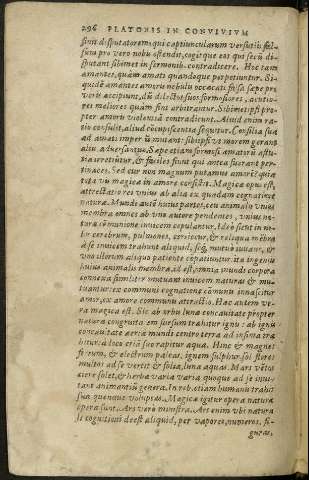 296 PLATONIS IN CONVIVIUM
sivit disputatorem: qui captiuncularum versutiis fal-
sum pro vero nobis ostendit, cogitque eos qui secū di-
sputant sibimet in sermonib. contradicere. Hoc tam
amantes, quàm amati quandoque perpetiuntur. Si-
quidē amantes amoris nebula occæcati falsa sæpe pro
veris accipiunt, dū dilectos suos formosiores, acutio-
res meliores quàm sint arbitrantur. Sibimetipsis pro-
pter amoris violentiā contradicunt. Aliud enim ra-
tio consulit, aliud cōcupiscentia sequitur. Consilia sua
ad amati imperiū mutant: sibiipsis vt morem gerant
aliis aduersantur. Sæpe etiam formosi amatorū astu-
tia irretiūtur, & faciles fiunt qui antea fuerant per-
tinaces. Sed cur non magnum putamus amorē? quia
tota vis magicæ in amore consistit. Magicæ opus est,
attractatio rei vnius ab alia ex quadam cognatione
naturæ. Mundi autē huius partes, ceu animalis vnius
membra omnes ab vno autore pendentes, vnius na-
turæ cōmunione inuicem copulantur. Ideo sicut in no-
bis cerebrum, pulmones, cor, iecur, & reliqua membra
à se inuicem trahunt aliquid, seq́; mutuò iuuant, &
vno illorum aliquo patiente cōpatiuntur: ita ingentis
huius animalis membra, id est, omnia mundi corpora
connexa similiter mutuant inuicem naturas & mu-
tuantur: ex communi cognatione cōmunis innascitur
amor, ex amore communis attractio. Hæc autem ve-
ra magica est. Sic ab orbis lunæ concauitate propter
naturæ congruitatem sursum trahitur ignis: ab ignis
concauitate aër: à mundi centro terra ad infima tra-
hitur: à loco etiā suo rapitur aqua. Hinc & magnes
ferrum, & electrum paleas, ignem sulphur, sol flores
multos ad se vertit & folia, luna aquas. Mars vētos
ciere solet, & herbæ variæ varia quoque ad se inui-
tant animantiū genera. In reb. etiam humanis trahit
sua quenque voluptas. Magicæ igitur opera naturæ
opera sunt. Ars verò ministra. Ars enim vbi natura-
li cognationi deest aliquid, per vapores, numeros, fi-
guras,